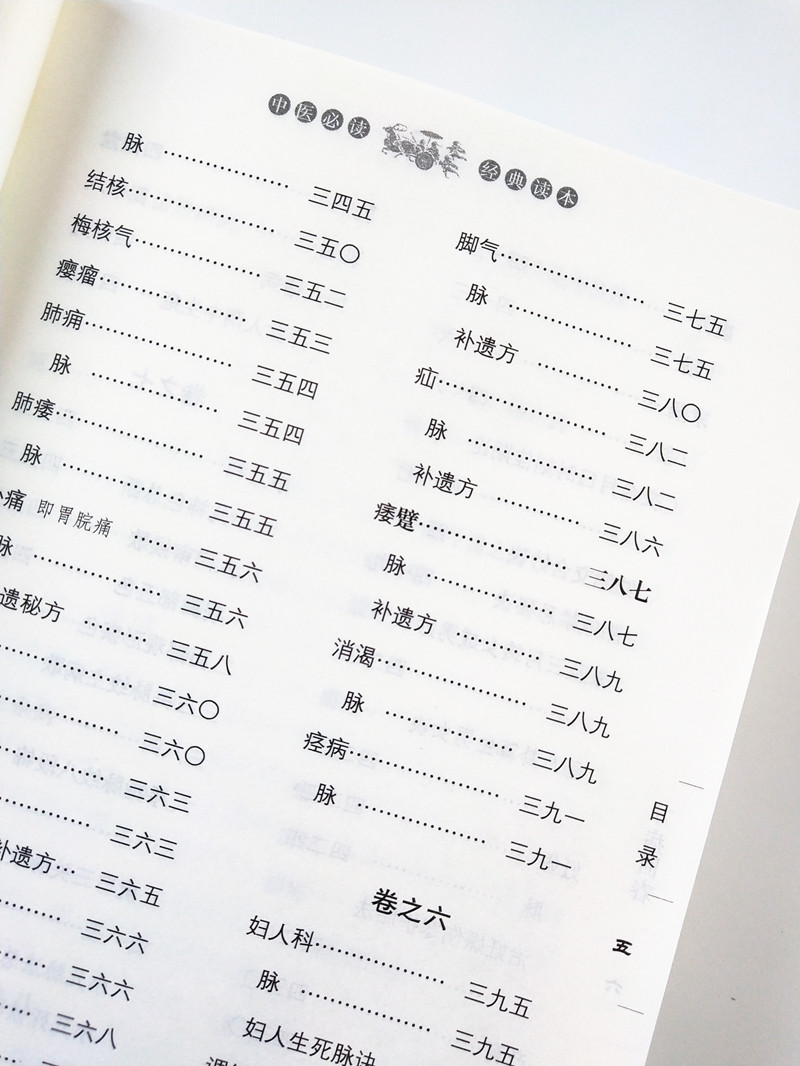 中医必读 经典读本
脉 …… 三四五
结核 …… 三五〇
梅核气 …… 三五二
瘿瘤 …… 三五三
肺痈 …… 三五四
脉 …… 三五四
肺痿 …… 三五五
脉 …… 三五五
痛 即胃脘痛 …… 三五六
脉 …… 三五六
遗秘方 …… 三五八
…… 三六〇
…… 三六〇
…… 三六三
…… 三六三
补遗方 …… 三六五
…… 三六六
…… 三六六
…… 三六八
脚气 …… 三七五
脉 …… 三七五
补遗方 …… 三八〇
疝 …… 三八二
脉 …… 三八二
补遗方 …… 三八六
痿躄 …… 三八七
脉 …… 三八七
补遗方 …… 三八九
消渴 …… 三八九
脉 …… 三八九
痓病 …… 三九一
脉 …… 三九一
卷之六
妇人科 …… 三九五
脉 …… 三九五
妇人生死脉诀
目录
五